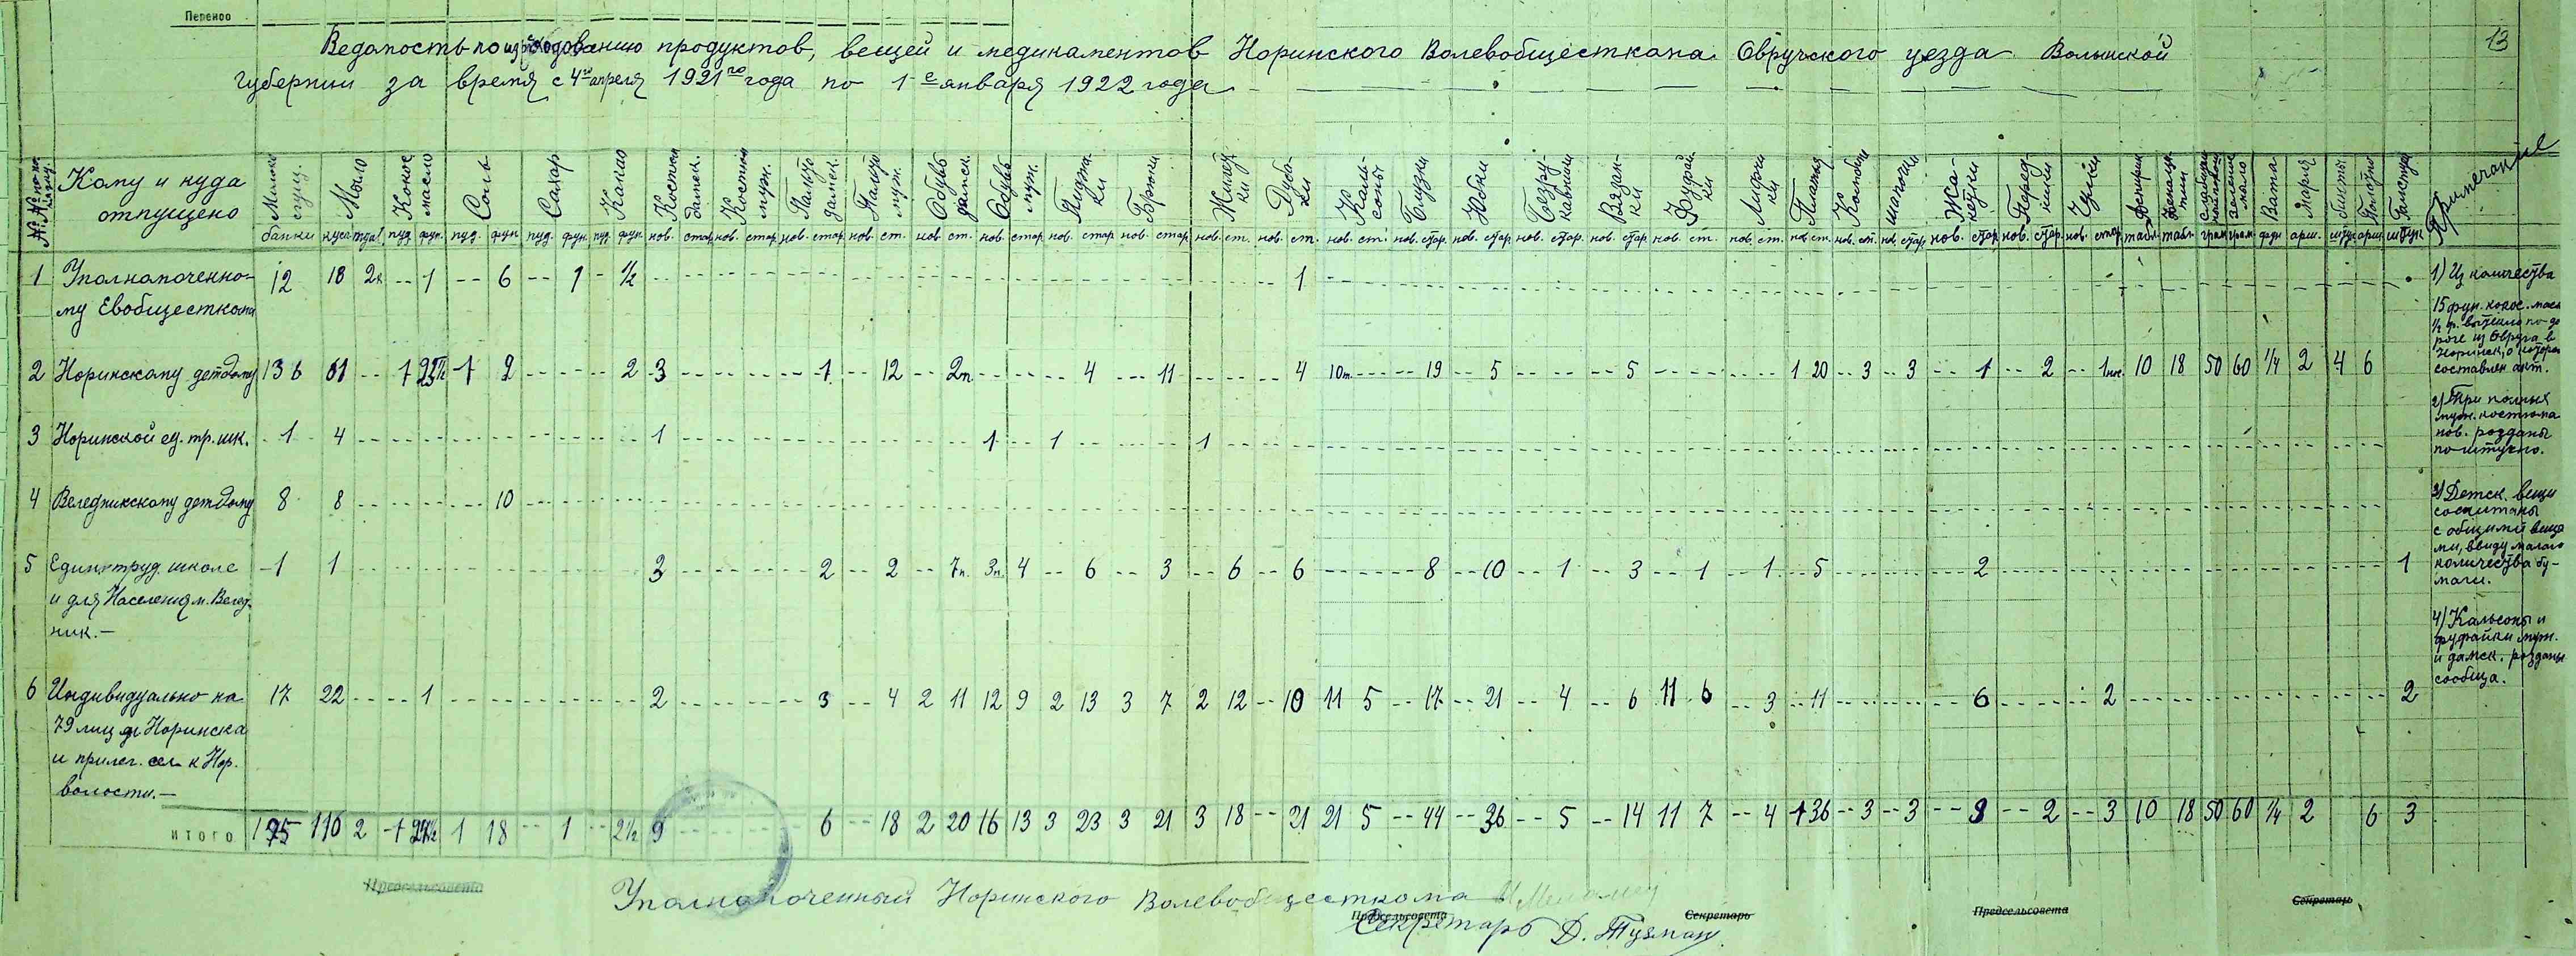 Перенос
13
Ведомость по израсходованию продуктов, вещей и медикаментов Норинского Волевобщесткома Овручского уезда Волынской
губернии за время с 4го апреля 1921го года по 1е января 1922 года
№№ по по-рядку. Кому и куда отпущено Молоко сгущ. Мыло Кокос масло Соль Сахар Какао Костюм дамск. Костюм муж. Пальто дамск. Пальто муж. Обувь дамск. Обувь муж. Пиджаки Брюки Жилетки Кальсоны Блузки Юбки Безрукавники Вязанки Фуфайки Лифчики Платья Шапочки Жакетки Передники Чулки Аспирин Вата Марля Бинты Полотно Галстуки Примечание
банки куск. пуд. фун. пуд. фун. пуд. фун. пуд. фун. нов. стар. нов. стар. нов. стар. нов. ст. нов. ст. нов. стар. нов. стар. нов. стар. нов. ст. нов. ст. нов. ст. нов. стар. нов. стар. нов. стар. нов. стар. нов. ст. нов. ст. нов. ст. нов. ст. нов. стар. нов. стар. нов. стар. нов. стар. табл. табл. грам. грам. фун. арш. штук арш. штук
1 Уполномоченно- 12 18 2 1 6 1 ½ 1
му Евобщесткома
2 Норинскому детдому 136 61 1 2 2 3 1 12 2п. 4 11 4 10 19 5 5 1 20 3 3 1 2 1 10 18 50 60 ¼ 2 4 6
3 Норинской ед. тр. шк. 1 4 1 1 1 1
4 Веледникскому детдому 8 8 10
5 Един. труд. школе 1 1 3 2 2 7п. 3п. 4 6 3 6 6 8 10 1 3 1 1 5 2 1
и для Населения м. Велед-
ник.—
6 Индивидуально на 17 22 1 2 3 4 2 11 12 9 2 13 3 7 2 12 10 11 5 17 21 4 6 11 6 3 11 6 2 2
79 лиц Норинска
и прилег. сел к Нор.
волости.—
итого 175 110 2 1 1 18 1 2½ 9 6 18 2 20 16 13 3 23 3 21 3 18 21 21 5 44 36 5 14 11 7 4 1 36 3 3 9 2 3 10 18 50 60 ¼ 2 6 3
1) Из количества
15 фун. кокос. масл
½ ф. вытекло по до
роге из Овруча в
Норинск, о котором
составлен акт.
2) При полных
муж. костюма
нов. розданы
поштучно.
3) Детск. вещи
сосчитаны
с общими веща
ми, ввиду малого
количества бу-
маги.
4) Кальсоны и
фуфайки муж.
и дамск. розданы
сообща.
Предсельсовета
Уполномоченный Норинского Волевобщесткома
Предсельсовета Секретарь Предсельсовета Секретарь
Секретарь Д. Тузман